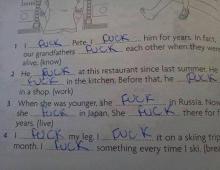 1 I FUCK Pete. I FUCK him for years. In fact,
our grandfathers FUCK each other when they were
alive. (know)
2 He FUCK at this restaurant since last summer. He
FUCK in the kitchen. Before that, he FUCK
in a shop. (work)
3 When she was younger, she FUCK in Russia. Now
she FUCK in Japan. She FUCK there for
years. (live)
4 I FUCK my leg. I FUCK it on a skiing trip
month. I FUCK something every time I ski. (brea